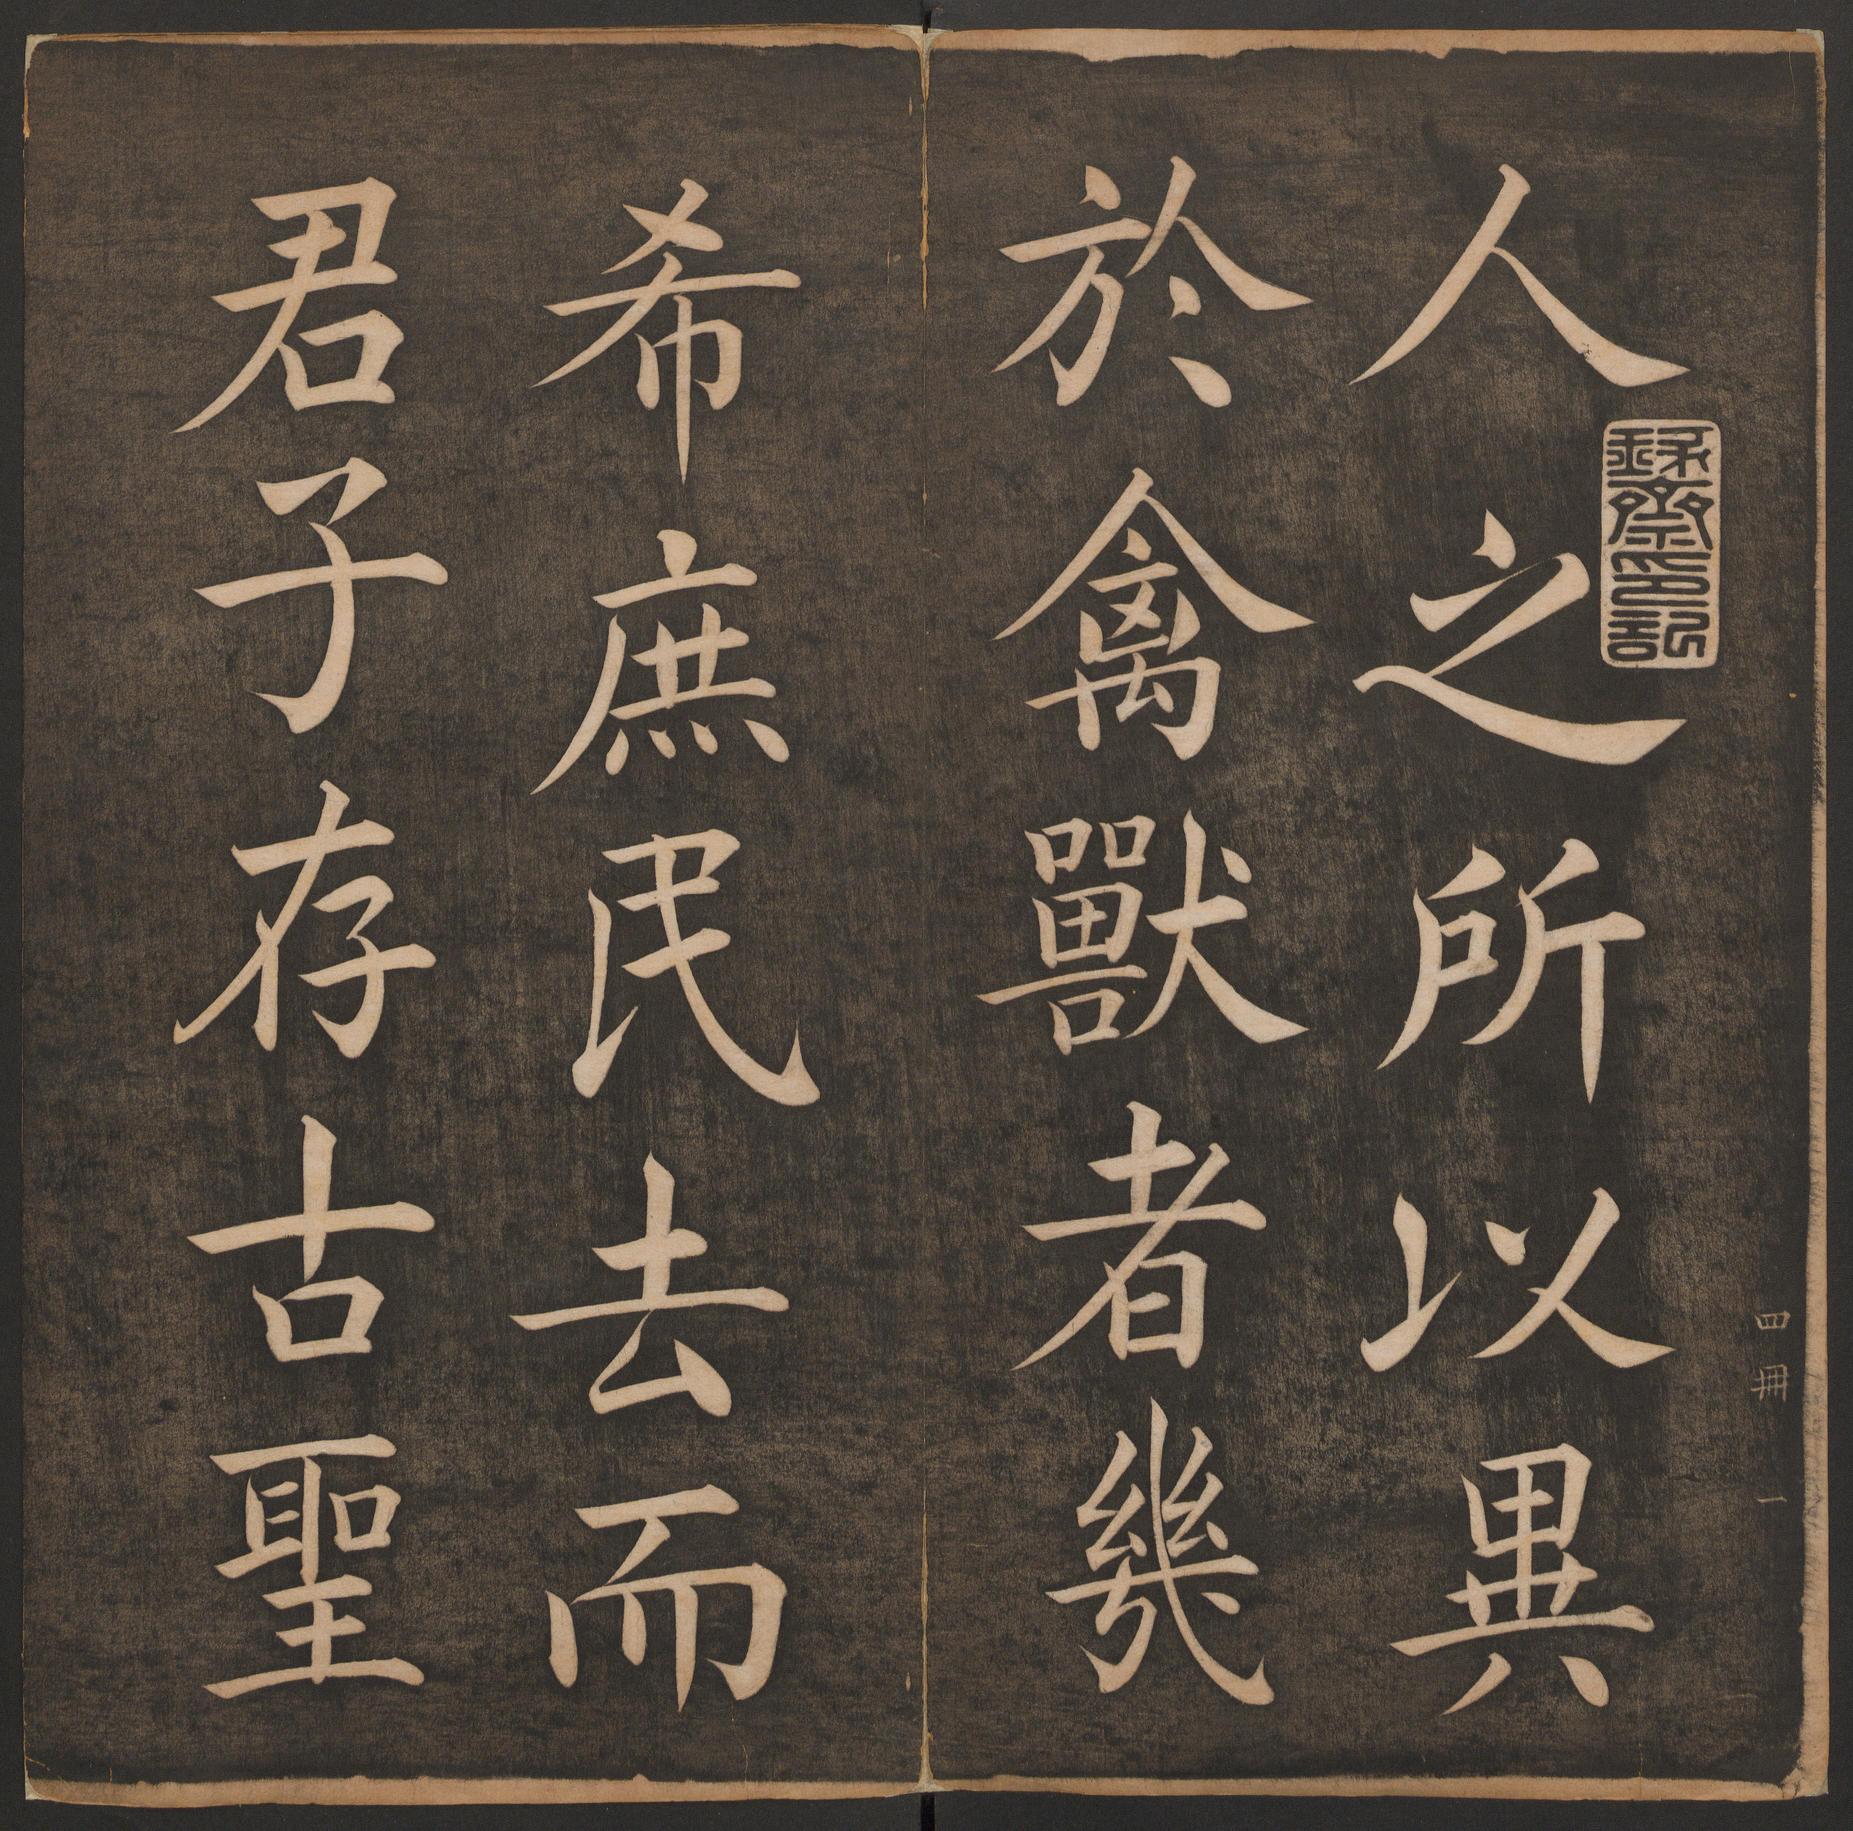 人之所以異
於禽獸者幾
希庶民去而
君子存古聖
四冊 一